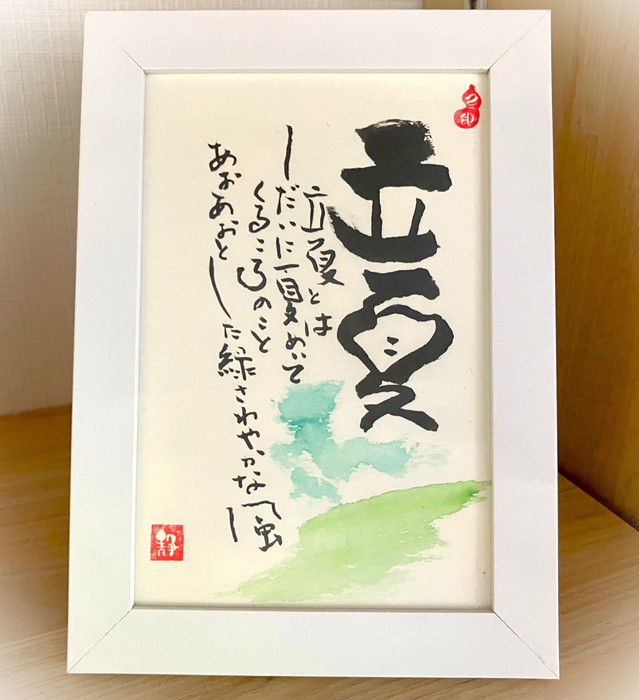 立夏
立夏とは
しだいに夏めいて
くるころのこと
あおあおとした緑さわやかな風
静